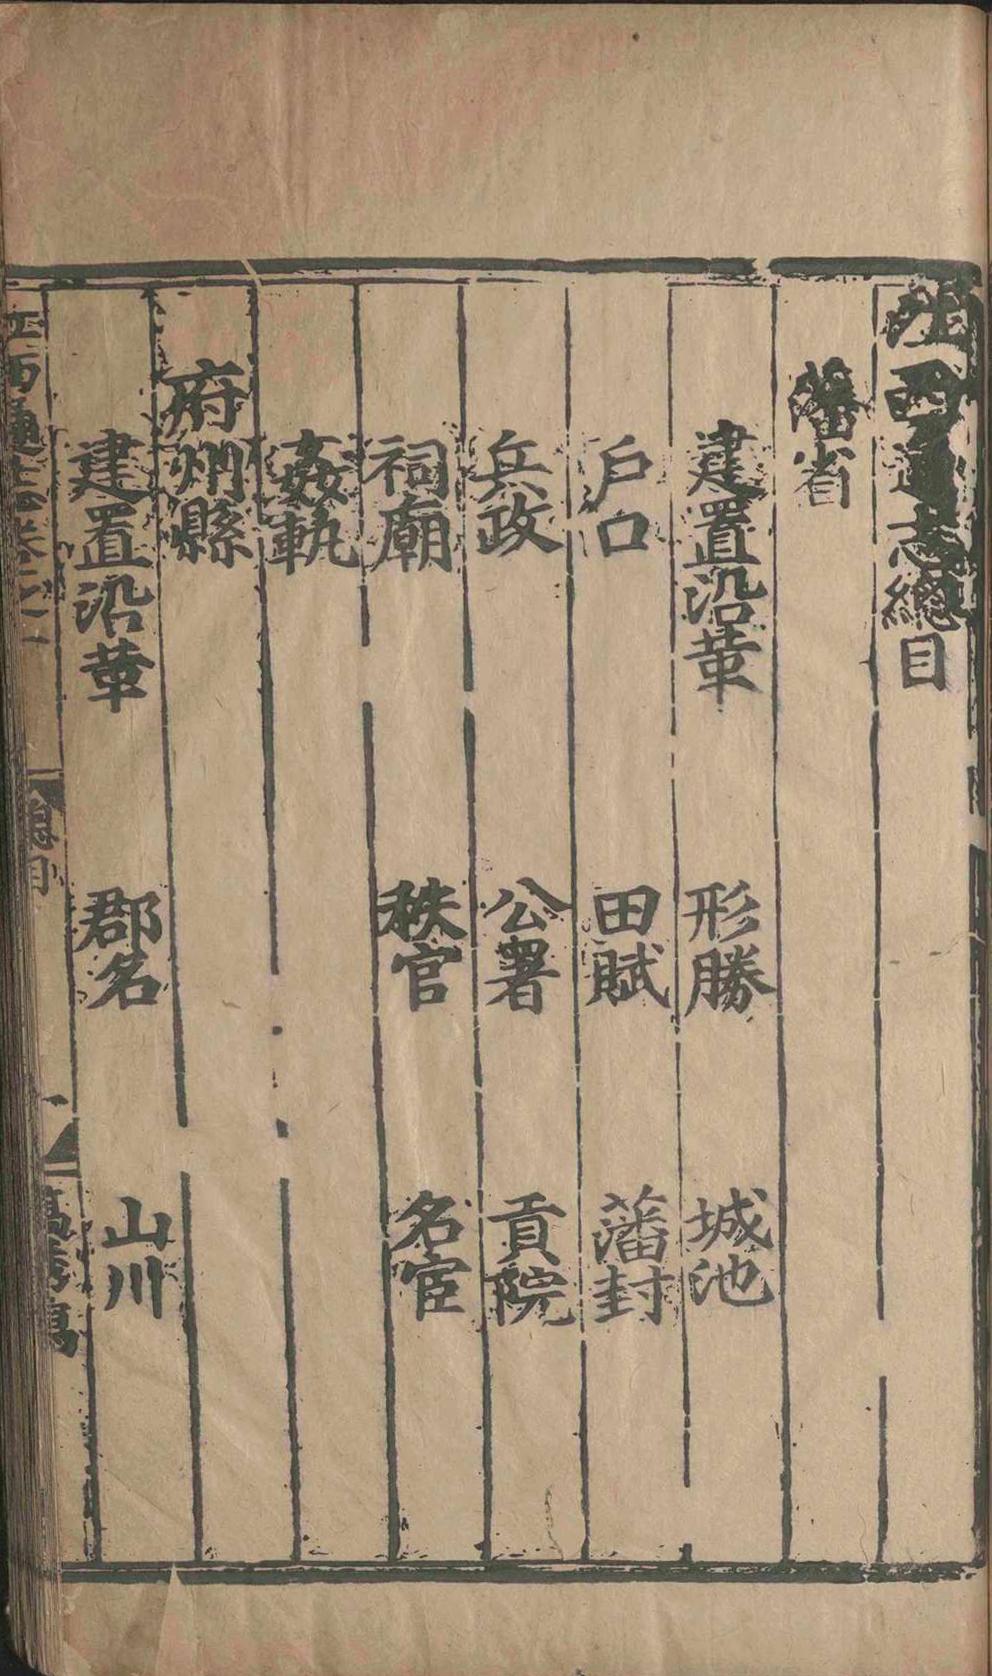 江西通志總目
藩省
建置沿革　形勝　城池
戶口　田賦　藩封
兵政　公署　貢院
祠廟　秩官　名宦
姦軌
府州縣
建置沿革　郡名　山川
江西通志卷之一
總目